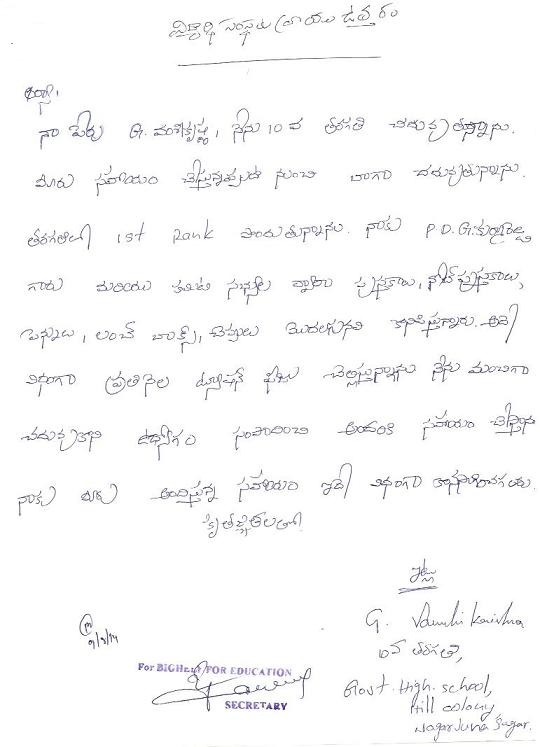 విద్యార్థి సంస్థకు వ్రాయు ఉత్తరం
నా పేరు G. వంశీకృష్ణ, నేను 10 వ తరగతి చదువుతున్నాను.
మీరు సహాయం చేస్తున్నప్పటి నుంచి బాగా చదువుతున్నాను.
తరగతిలో 1st Rank పొందుతున్నాను. నాకు P.D.G.
గారు మరియు కమిటి సభ్యుల ద్వారా పుస్తకాలు, నోట్ పుస్తకాలు,
పెన్నులు, లంచ్ బాక్స్, చెప్పులు మొదలగునవి అది
విధంగా ప్రతినెల ట్యూషన్ ఫీజు చెల్లిస్తున్నారు నేను మంచిగా
చదువుకొని ఉద్యోగం సంపాదించి అందరికి సహాయం చేస్తాను
నాకు మీరు అందిస్తున్న సహాయం ఇదే విధంగా
కృతజ్ఞతలతో
ఇట్లు
G. Vamshi Krishna
10వ తరగతి,
Govt. High. School,
Hill colony
Nagarjuna Sagar.
9/8/14
For BIGHELP FOR EDUCATION
SECRETARY